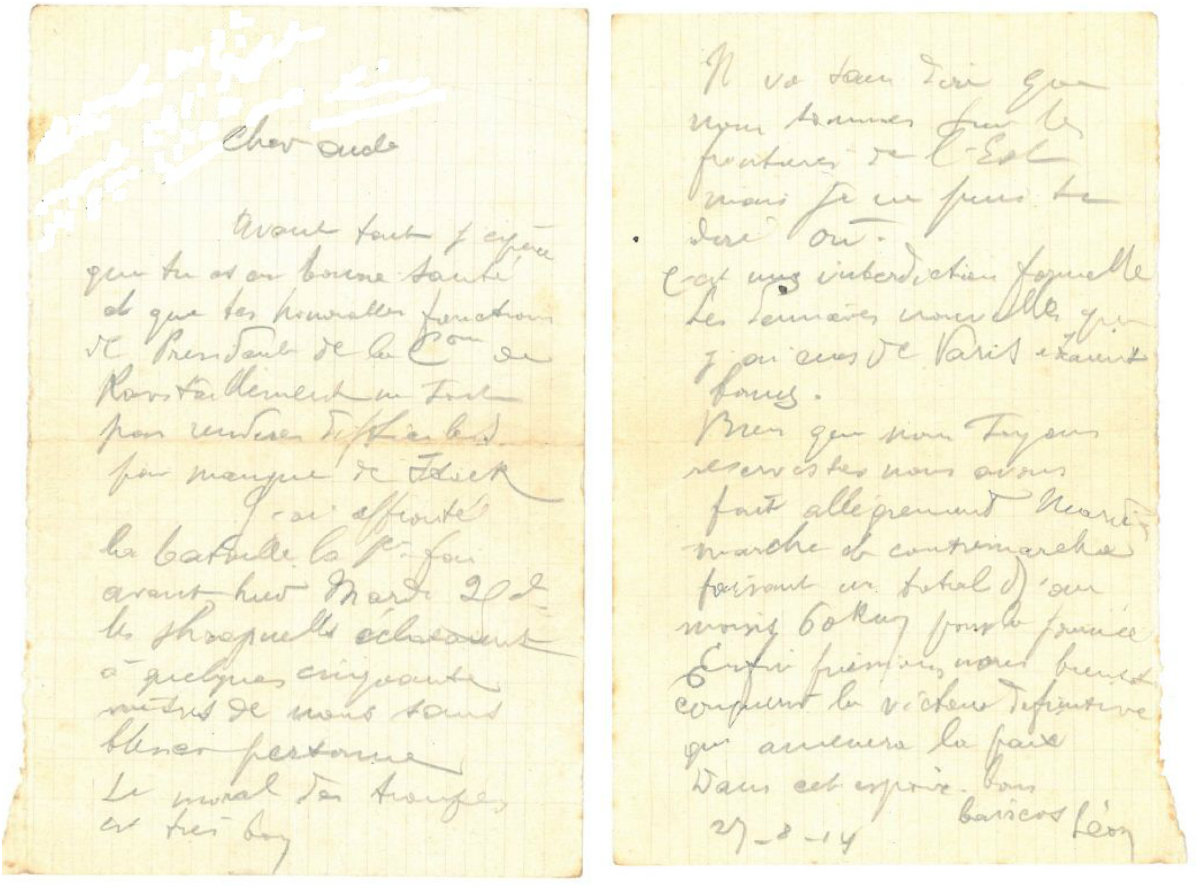 Cher oncle
Avant tout j'espère
que tu es en bonne santé
et que tes nouvelles fonctions
de Président de la Com de
Ravitaillement ne sont
pas rendues difficiles
par manque de stock
J'ai affronté
la bataille la 1ere fois
avant hier Mardi
les shrapnells éclataient
à quelques cinquante
mètres de nous sans
blesser personne
Le moral des troupes
est très bon
Il va sans dire que
nous sommes sur les
frontières de l'Est
mais je ne puis te
dire où.
C'est une interdiction formelle
Les dernières nouvelles que
j'ai eues de Paris étaient
bonnes.
Bien que nous soyons
réservistes nous avons
fait allègrement Mardi
marche et contremarche
faisant un total d'au
moins 60 km pour la journée
Enfin puissions nous bientôt
conquérir la victoire définitive
qui amènera la paix
Dans cet espoir. bons
baisers Léon
27-8-14